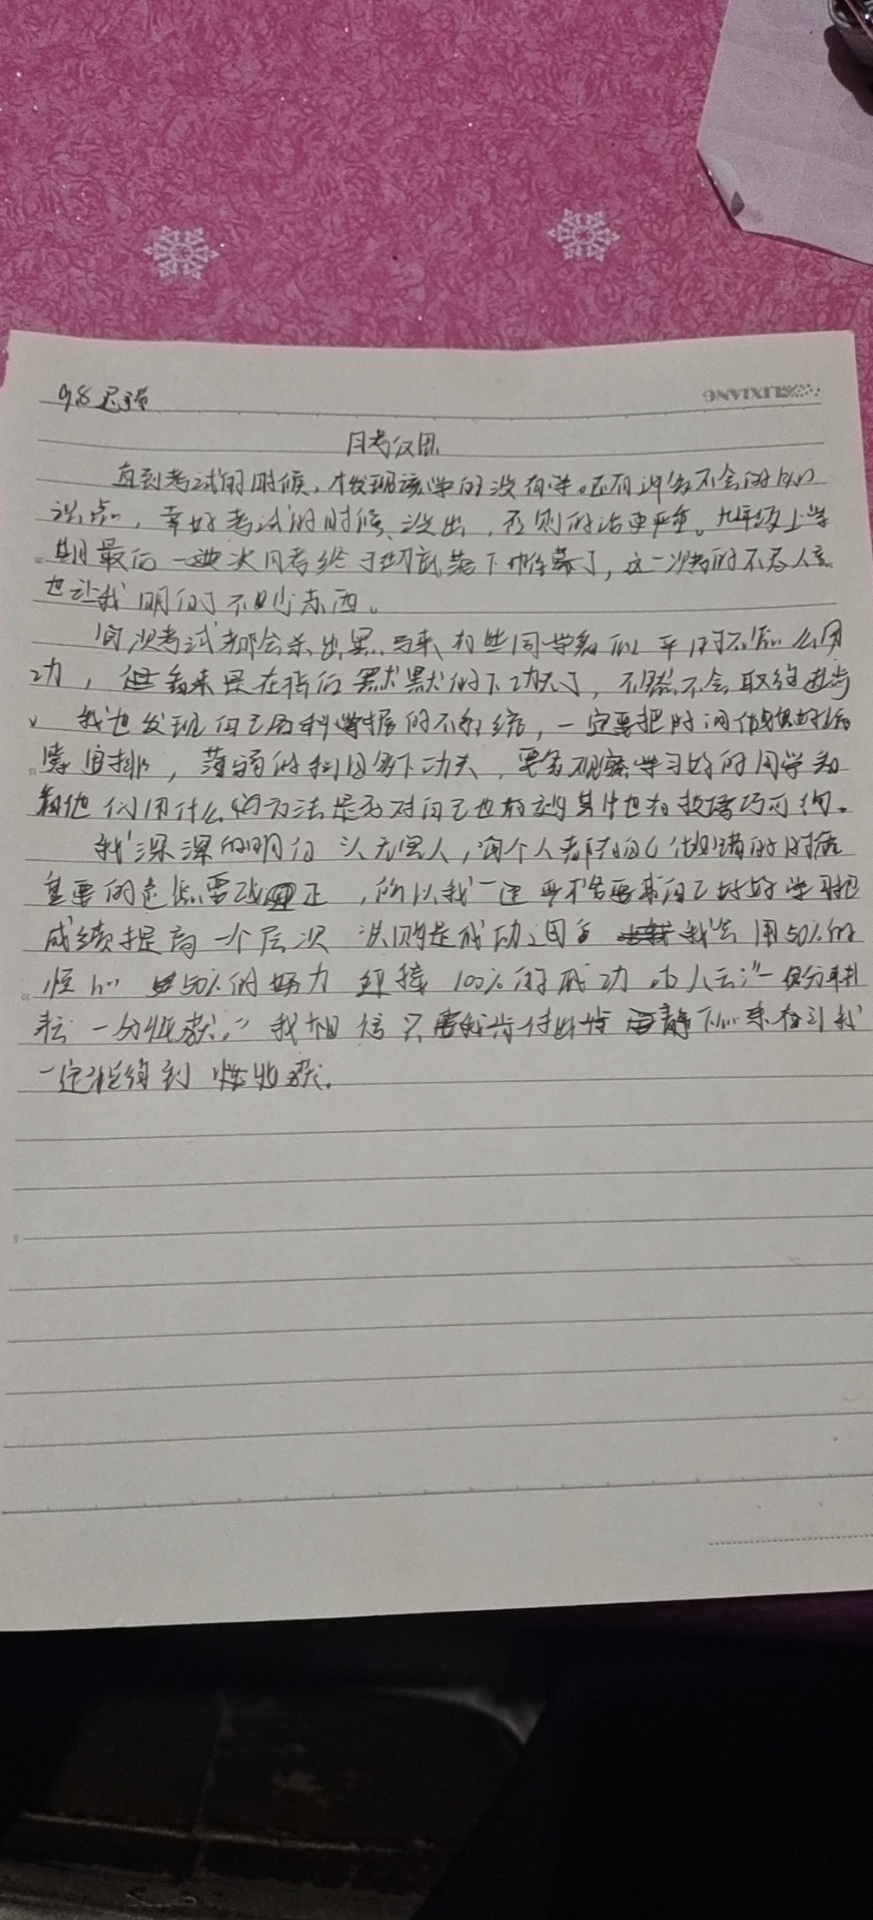 9.8
LIXIANG
月考
直到考试的时候，才发现该学的没有学。还有许多不会的知
识点，幸好考试的时候没出，否则的话更严重。九年级上学
期最后一次月考终于彻底落下帷幕了，这一次考的不尽人意
也让我明白了不少东西。
每次考试都会杀出黑马来，有些同学看似平时不怎么用
功，但看来是在背后默默的下功夫了，不然不会取得进步
我也发现自己各科掌握的不系统，一定要把时间
安排，薄弱的科目多下功夫，要多观察学习好的同学
他们用什么的方法是否对自己也有效其中也有技巧可约。
我深深的明白 人无完人，每个人都有自己犯错的时候
重要的是 要改正，所以我一定 要求自己好好学习把
成绩提高一个层次 决 是成功 我会用50%的
恒心 50%的努力 迎接 100%的成功 古人云："一份耕
耘 一分收获，"我相信只要我肯付出肯静下心来学习我
一定能得到 收获.